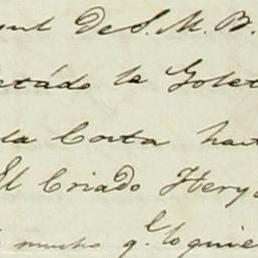 sul De S. M. B.
etádo la Golet
la Costa hast
El Criado Hery
mucho q.e lo quie